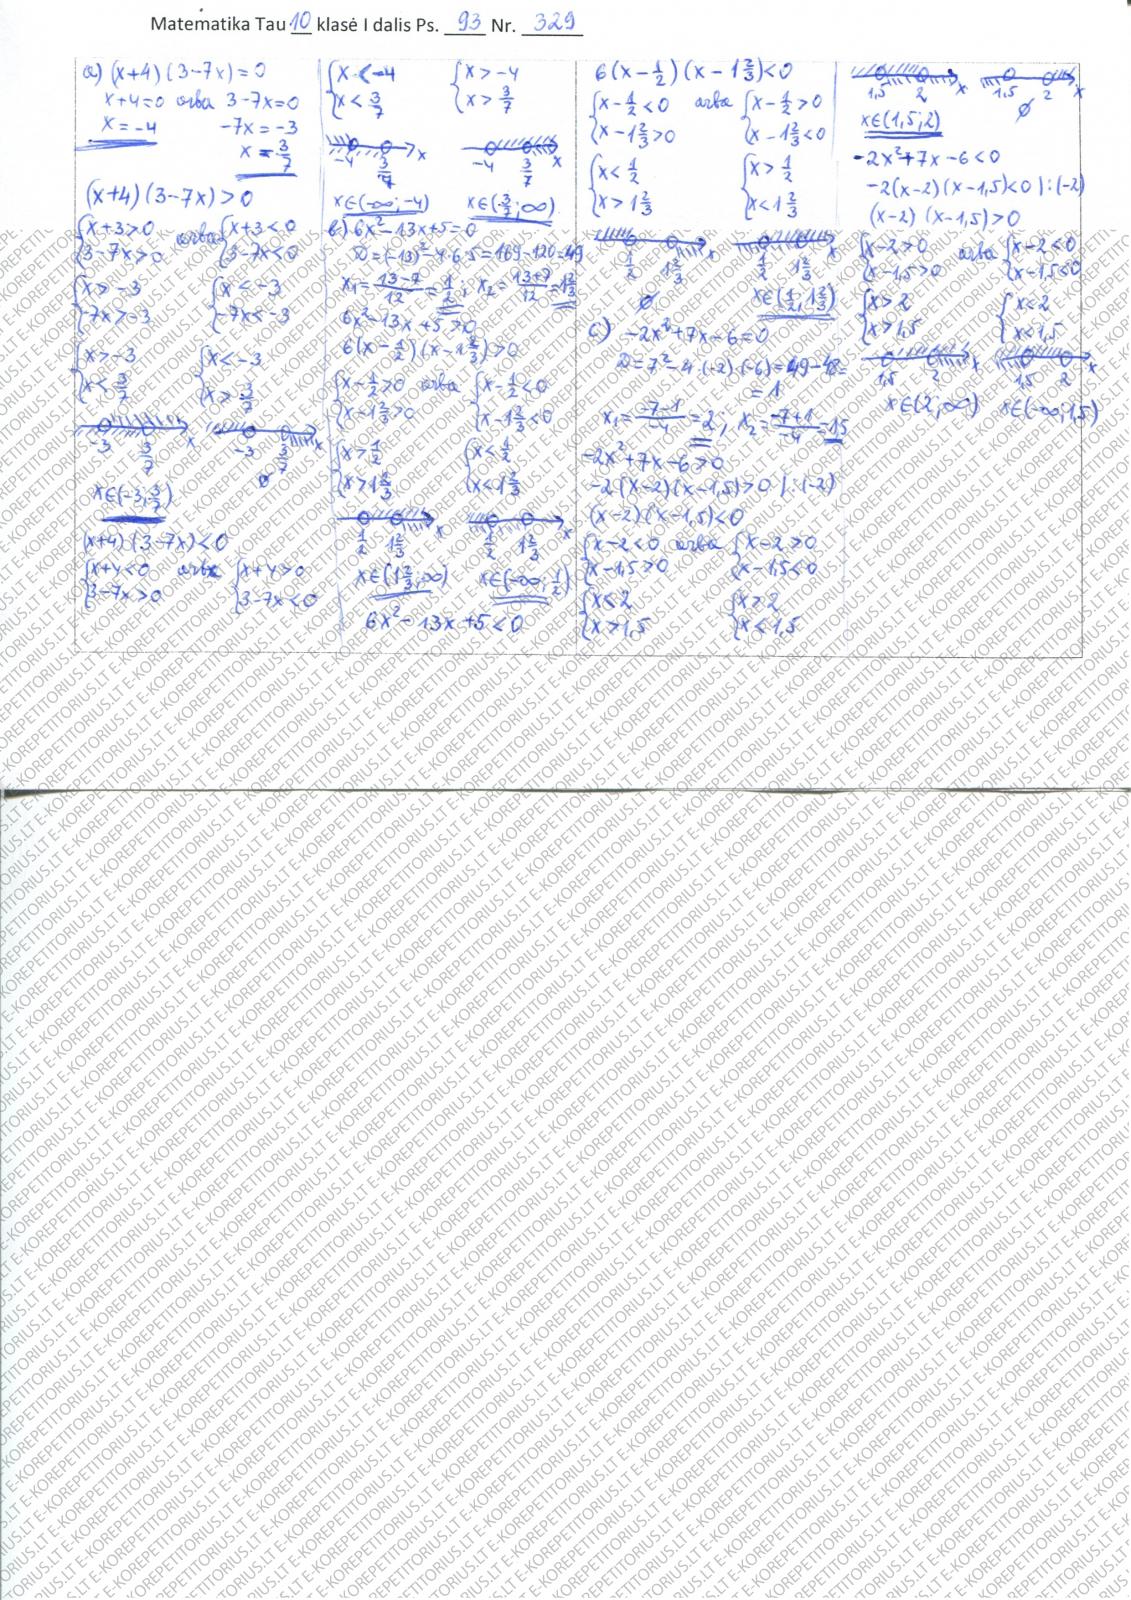 Matematika Tau 10 klasė I dalis Ps. 93 Nr. 329
a) (x+4)(3-7x)=0
x+4=0 arba 3-7x=0
x=-4 -7x=-3
x=3/7
(x+4)(3-7x)>0
{x+3>0 arba {x+3<0
{3-7x>0 {3-7x<0
{x>-3 {x<-3
{-7x>-3 {-7x<-3
{x>-3 {x<-3
{x<3/7 {x>3/7
-3 3/7 x -3 3/7 x
∅
x∈(-3;3/7)
(x+4)(3-7x)<0
{x+4<0 arba {x+4>0
{3-7x>0 {3-7x<0
{x<-4 {x>-4
{x<3/7 {x>3/7
-4 3/7 x -4 3/7 x
x∈(-∞;-4) x∈(3/7;∞)
b) 6x²-13x+5=0
D=(-13)²-4·6·5=169-120=49
x₁=(13-7)/12=1/2; x₂=(13+7)/12=1 2/3
6x²-13x+5>0
6(x-1/2)(x-1 2/3)>0
{x-1/2>0 arba {x-1/2<0
{x-1 2/3>0 {x-1 2/3<0
{x>1/2 {x<1/2
{x>1 2/3 {x<1 2/3
1/2 1 2/3 x 1/2 1 2/3 x
x∈(1 2/3;∞) x∈(-∞;1/2)
6x²-13x+5<0
6(x-1/2)(x-1 2/3)<0
{x-1/2<0 arba {x-1/2>0
{x-1 2/3>0 {x-1 2/3<0
{x<1/2 {x>1/2
{x>1 2/3 {x<1 2/3
1/2 1 2/3 x 1/2 1 2/3 x
∅ x∈(1/2;1 2/3)
c) -2x²+7x-6=0
D=7²-4·(-2)·(-6)=49-48=
=1
x₁=(-7-1)/-4=2; x₂=(-7+1)/-4=1,5
-2x²+7x-6>0
-2(x-2)(x-1,5)>0 |:(-2)
(x-2)(x-1,5)<0
{x-2<0 arba {x-2>0
{x-1,5>0 {x-1,5<0
{x<2 {x>2
{x>1,5 {x<1,5
1,5 2 x 1,5 2 x
∅
x∈(1,5;2)
-2x²+7x-6<0
-2(x-2)(x-1,5)<0 |:(-2)
(x-2)(x-1,5)>0
{x-2>0 arba {x-2<0
{x-1,5>0 {x-1,5<0
{x>2 {x<2
{x>1,5 {x<1,5
1,5 2 x 1,5 2 x
x∈(2;∞) x∈(-∞;1,5)
E-KOREPETITORIUS.LT